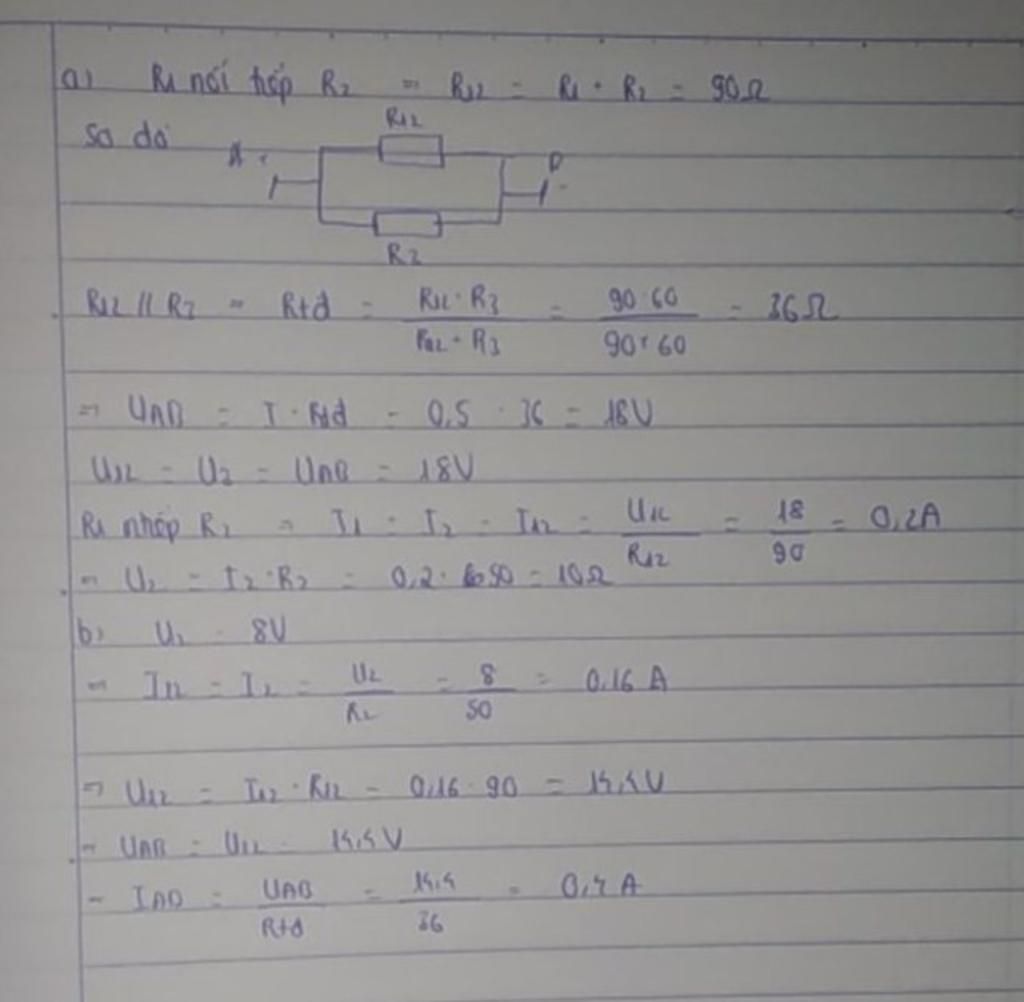 a) R1 nối tiếp R2 ⇒ R12 = R1 + R2 = 90Ω
Sơ đồ
R12
A +
B -
R2
R12 // R3 ⇒ Rtđ = R12 · R3 / R12 + R3 = 90 · 60 / 90 + 60 = 36Ω
⇒ UAB = I · Rtđ = 0,5 · 36 = 18V
U12 = U3 = UAB = 18V
R1 nt tiếp R2 ⇒ I1 = I2 = I12 = U12 / R12 = 18 / 90 = 0,2A
⇒ U2 = I2 · R2 = 0,2 · 50 = 10Ω
b) U2 = 8V
⇒ I12 = I2 = U2 / R2 = 8 / 50 = 0,16 A
⇒ U12 = I12 · R12 = 0,16 · 90 = 14,4V
⇒ UAB = U12 = 14,4V
⇒ IAB = UAB / Rtđ = 14,4 / 36 = 0,4 A